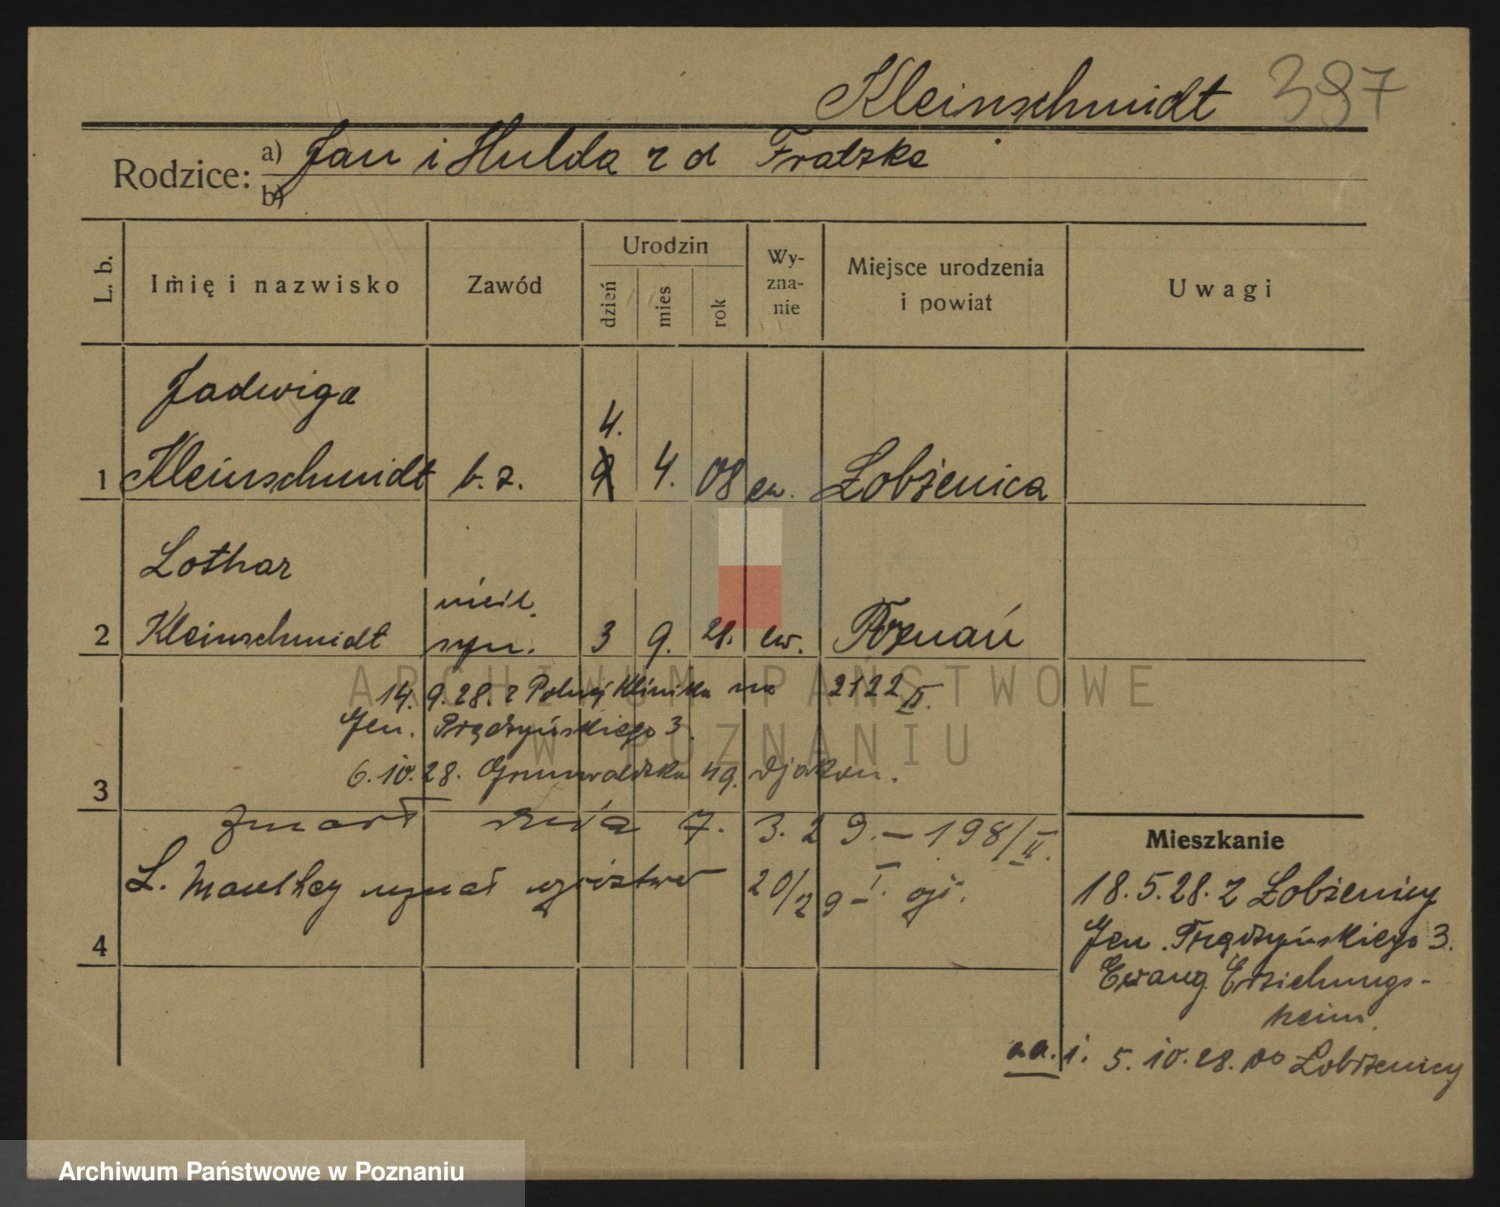 Kleinschmidt 397
Rodzice: a) Jan i Hulda z d Fratzke
b)
L. b. Imię i nazwisko Zawód Urodzin dzień mies rok Wyznanie Miejsce urodzenia i powiat Uwagi
Jadwiga
4.
1 Kleinschmidt b. z. 9 4. 08 ew. Łobżenica
Lothar
nieśl.
2 Kleinschmidt syn. 3 9. 28. ew. Poznań
14. 9. 28. z Polnej Klinika na 2122 II.
Gen. Prądzyńskiego 3.
3 6. 10. 28. Grunwaldzka 49. djakon.
zmarł dnia 7. 3. 29. – 198/II.
L. uznał ojcóstwo 20/29 – I.
4
Mieszkanie
18. 5. 28. z Łobżenicy
Gen. Prądzyńskiego 3.
Ewang. Erziehungs-
heim.
aa. i. 5. 10. 28. do Łobżenicy
ARCHIWUM PAŃSTWOWE
W POZNANIU
Archiwum Państwowe w Poznaniu